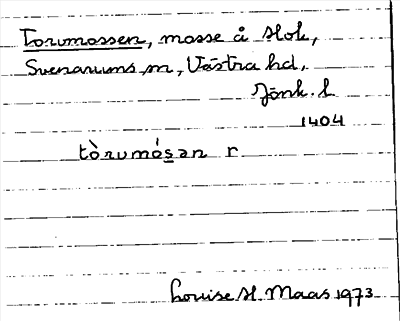 Torvmossen, mosse å Stok,
Svenarums sn, Västra hd,
Jönk. l
1404
tòrvmósan r
Louise H. Maas 1973